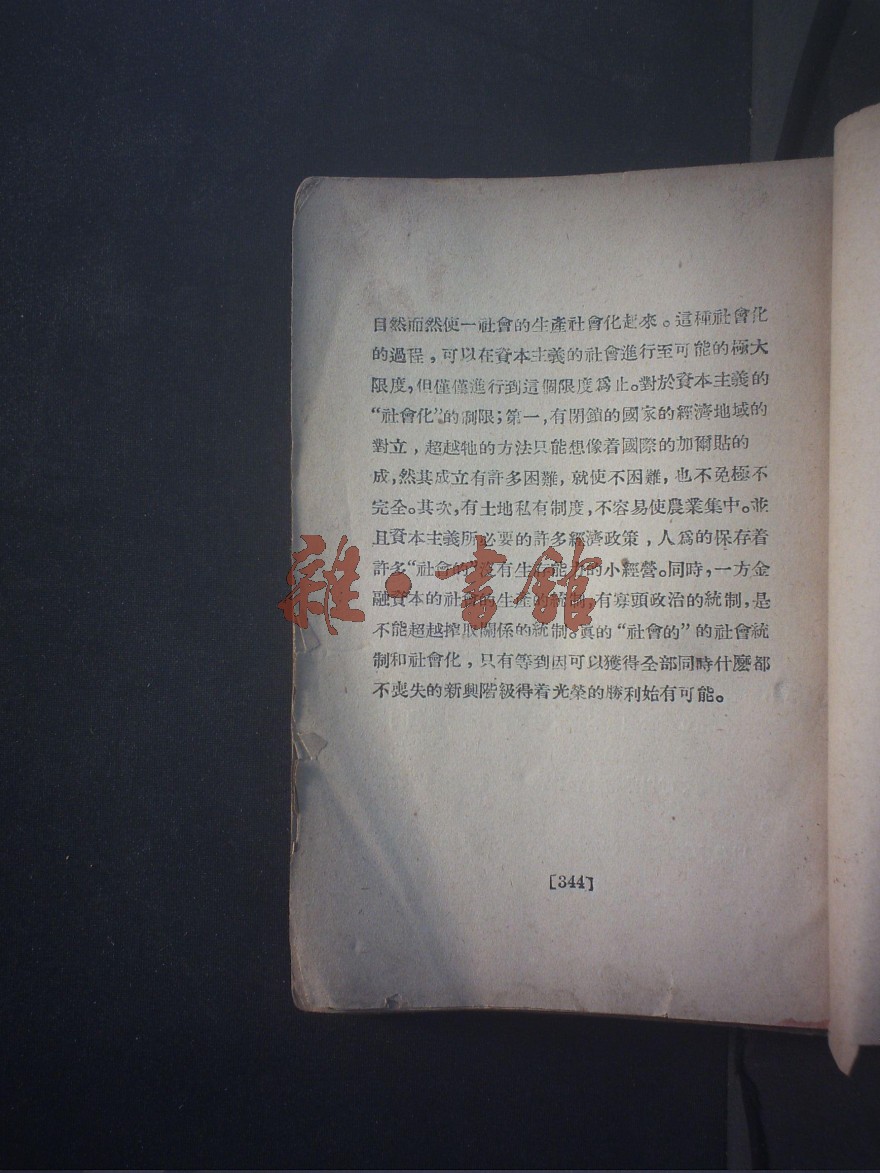 自然而然使一社會的生產社會化起來。這種社會化
的過程，可以在資本主義的社會進行至可能的極大
限度，但僅僅進行到這個限度爲止。對於資本主義的
“社會化”的制限；第一，有閉鎖的國家的經濟地域的
對立，超越牠的方法只能想像着國際的加爾貼的
成，然其成立有許多困難，就使不困難，也不免極不
完全。其次，有土地私有制度，不容易使農業集中。並
且資本主義所必要的許多經濟政策，人爲的保存着
許多“社會的”沒有生產能力的小經營。同時，一方金
融資本的社會的生產的統制，有寡頭政治的統制，是
不能超越搾取關係的統制。眞的“社會的”的社會統
制和社會化，只有等到因可以獲得全部同時什麽都
不喪失的新興階級得着光榮的勝利始有可能。
[344]
雜·書館